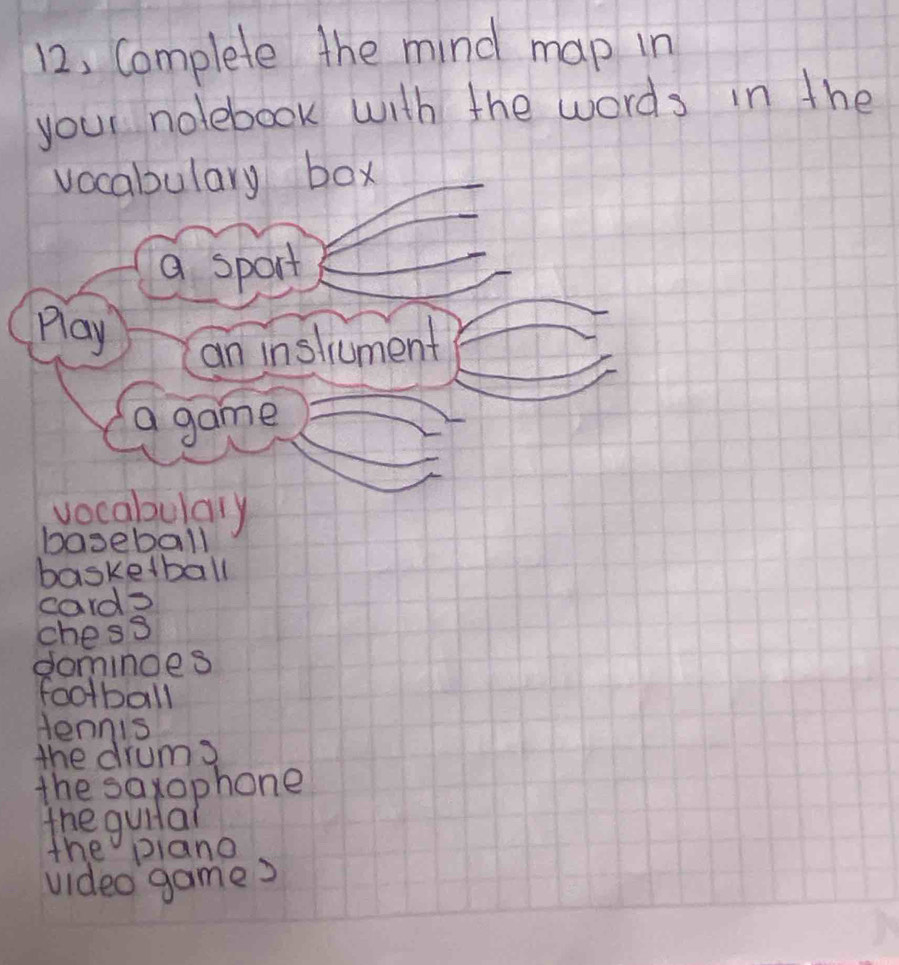 12, Complete the mind map in
your notebook with the words in the
vocabulary box
a sport
Play
an instrument
a game
vocabulary
baseball
basketball
cards
chess
dominoes
football
tennis
the drums
the saxophone
the guitar
the piano
video games